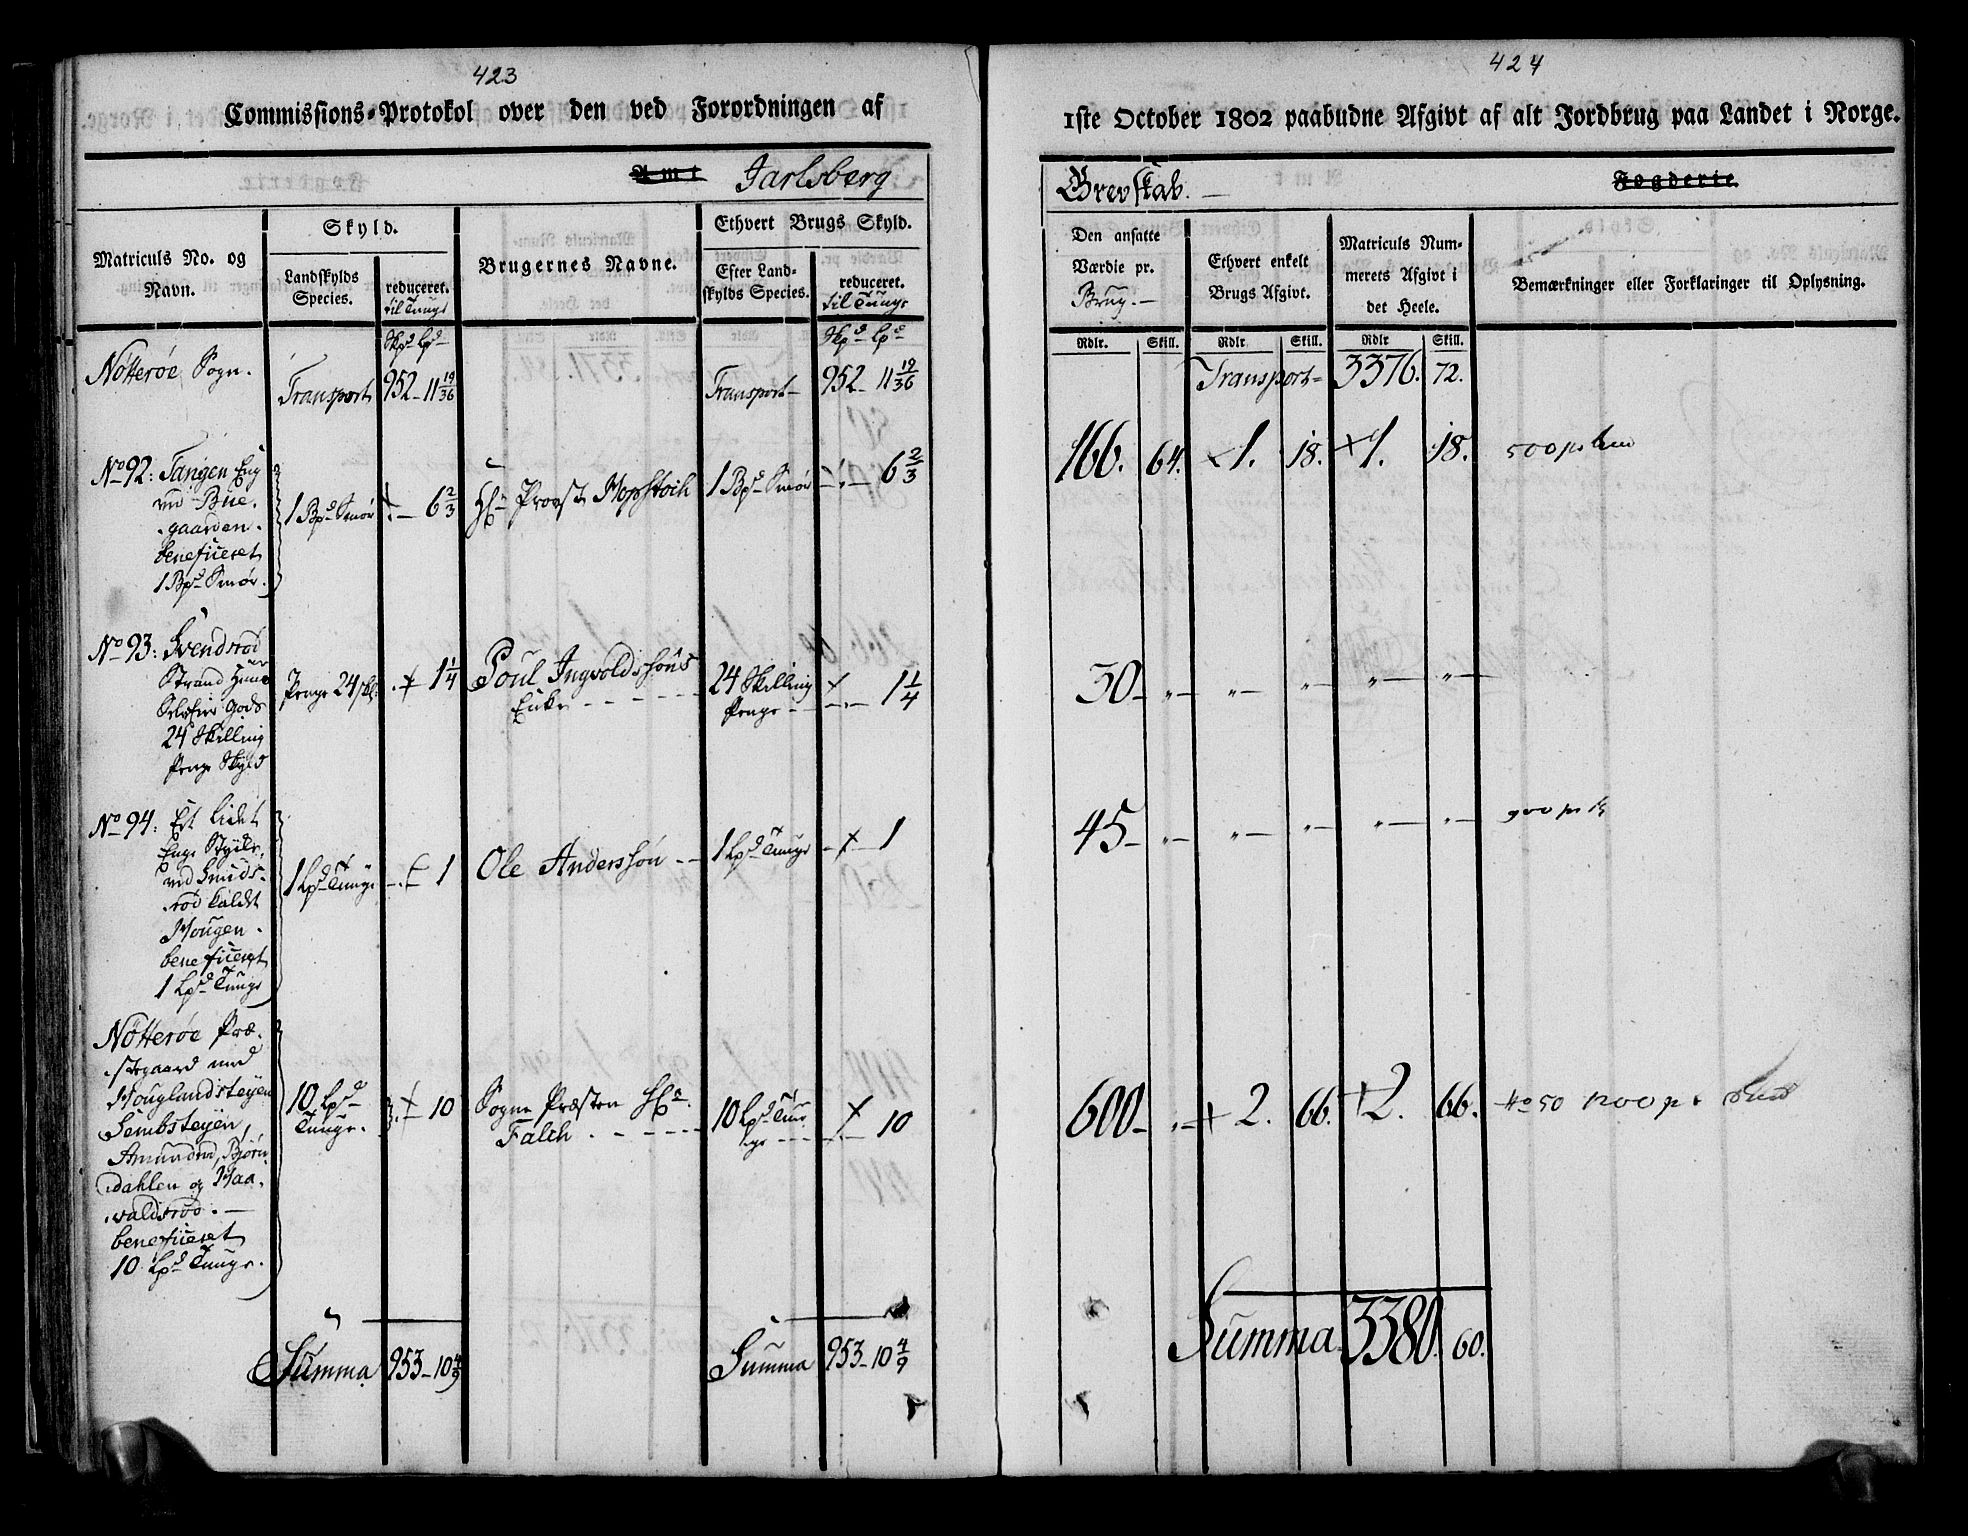 423
Commissions-Protokol over den ved Forordningen af
Amt Jarlsberg
Matriculs No. og Navn.
Skyld.
Landskylds Species.
reduceret. til Tunge
Brugernes Navne.
Ethvert Brugs Skyld.
Efter Landskylds Species.
reduceret. til Tunge
Skpd Lpd
Skpd Lpd
Nötteröe Sogn.
Transport
952 - 11 19/36
Transport -
952 - 11 19/36
No 92: Tangen Eng
ved Bue-
gaarden.
beneficeret
1 Bpd Smör.
1 Bpd Smör
6 2/3
Hr Provst Hopstock
1 Bpd Smör
6 2/3
No 93: Svendsrød
Strand Hune
Selveier Gods
24 Skilling
Penge Skyld
Penge 24 skl.
1 1/4
Poul Ingvoldssöns
Enke
24 Skilling
Penge
1 1/4
No 94. Et lidet
Enge Stykke,
ved Smids-
röd kaldt
Hougen.
beneficeret
1 Lpd Tunge
1 Lpd Tunge
1
Ole Anderssön
1 Lpd Tunge
1
Nötteröe Præ-
stegaard med
Houglandsteyen
Sembsteyen,
Amunderöd, Björn-
dahlen og Haa-
valdsröd.
beneficeret
10 Lpd Tunge.
10 Lpd
Tunge.
10
Sogne Præsten Hr.
Falch
10 Lpd Tun-
ge
10
Summa
953 - 10 4/9
Summa
953 - 10 4/9
424
1ste October 1802 paabudne Afgivt af alt Jordbrug paa Landet i Norge.
Grevskab.
Fogderie.
Den ansatte Værdie pr. Brug.
Ethvert enkelt Brugs Afgivt.
Matriculs Nummerets Afgivt i det Heele.
Bemærkninger eller Forklaringer til Oplysning.
Rdlr. Skill. Rdlr Skill. Rdlr Skill.
Transport 3376. 72.
166. 64. 1. 18. 1. 18.
30 - „ - „ - „ - „ - „ -
45 - „ - „ - „ - „ - „ -
600 - „ - 2. 66. 2. 66. No 50 1200
Summa 3380. 60.